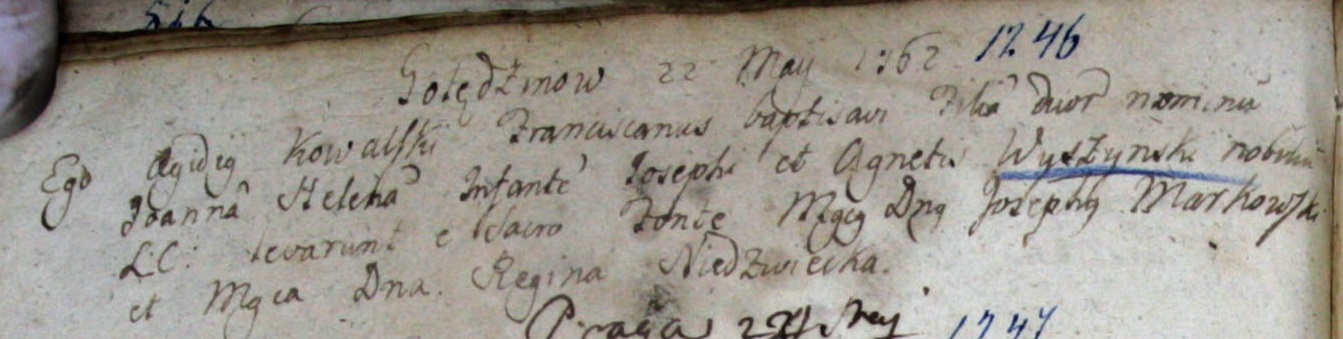 Gołędzinow 22 May 1762 1246
Ego Ægidig Kowalſki Franciscanus baptisavi filiã duor nominũ
Joannã Helenã Infantẽ Josephi et Agnetis Wyszynski nobiliũ
L:C: levarunt e Sacro Fonte Mgcg Dng Josephg Markowſki
et Mgca Dna. Regina Niedzwiecka.
Praga 22 May 1247